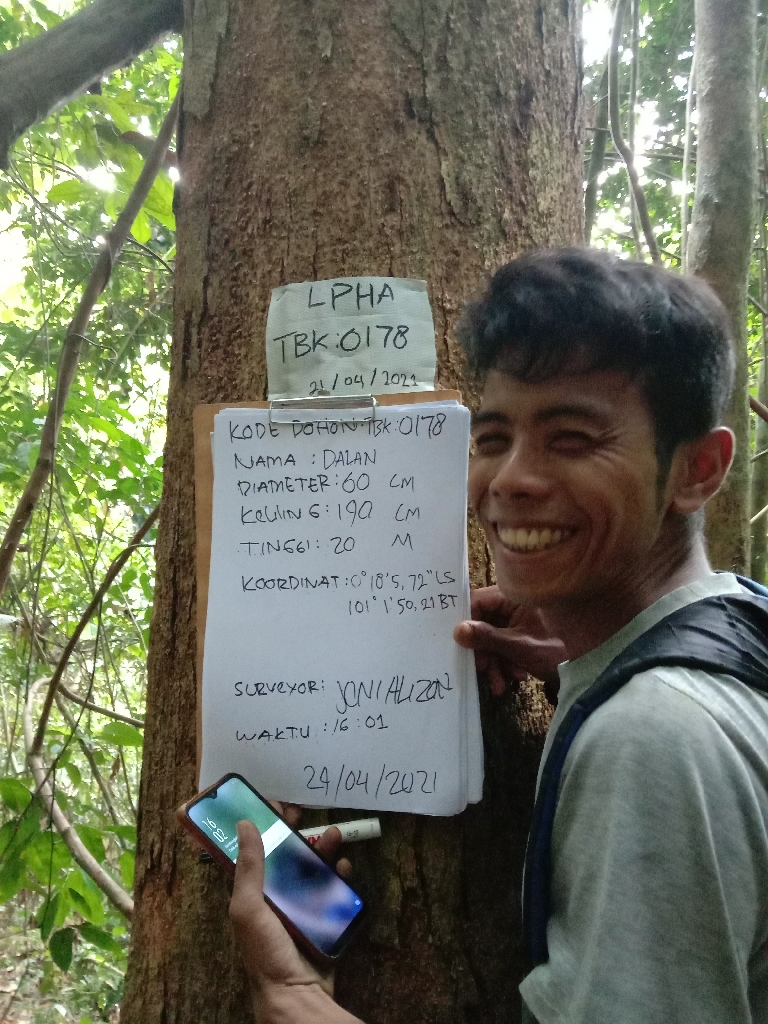 LPHA
TBK:0178
21/04/2021
KODE POHON:TBK:0178
NAMA : DALAN
DIAMETER:60 CM
KELLING:190 CM
TINGGI: 20 M
KOORDINAT:0°18'5,72"LS
101°1'50,21 BT
SURVEYOR: JONI ALIZON
WAKTU :16:01
24/04/2021
16
02